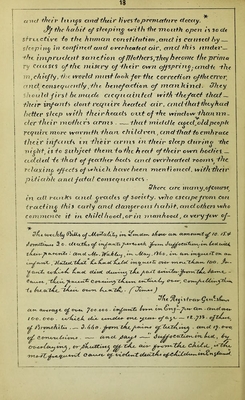 18
and their lungs and their lives to premature decay. *
If the habit of sleeping with the mouth open is so de-
structive to the human constitution, and is caused by
sleeping in confined and overheated air, and this under
the imprudent sanction of Mothers, they become the prima-
ry causes of the misery of their own offspring; and to the
m, chiefly, the world must look for the correction of the error,
and, consequently, the benefaction of mankind. They
should first be made acquainted with the fact that
their infants dont require heated air, and that they had
better sleep with their heads out of the window than un-
der their mother's arms — that middle aged, old people
require more warmth than children, and that to embrace
their infants in their arms in their sleep during the
night, is to subject them to the heat of their own bodies
added to that of feather beds and overheated rooms, the
relaxing effects of which have been mentioned, with their
pitiable and fatal consequences.
There are many, of course,
in all ranks and grades of society, who escape from con-
tracting this early and dangerous habit, and others who
commence it in childhood, or in manhood, a very few of
The weekly Bills of Mortality, in London show an amount of 10, 15 &
sometimes 20 deaths of infants per week from Suffocation, in bed with
their parents: and Mr. Wakley, in May, 1860, in an inquest on an
infant, stated that he had held inquests over more than 100 In-
fants which had died during the past winter, from the same
cause, their parents covering them entirely over, compelling them
to breathe their own breath. (Times)
The Registrar Genl. shews
an average of over 700.000 infants born in England per an. and over
100.000 which die under one year of age — 12,738, of them,
of Bronchitis — 3.660 from the pains of teething, and 19.000
of convulsions — and says — "Suffocation in bed, by
overlaying, or shutting off the air from the child, is the
most frequent cause of violent deaths of children in England